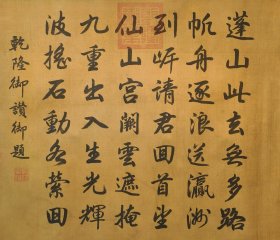 蓬山此去無多路
帆舟逐浪送瀛洲
到岸請君回首望
仙山宮闕雲遮掩
九重出入生光輝
波搖石動水縈回
乾隆御讚御題